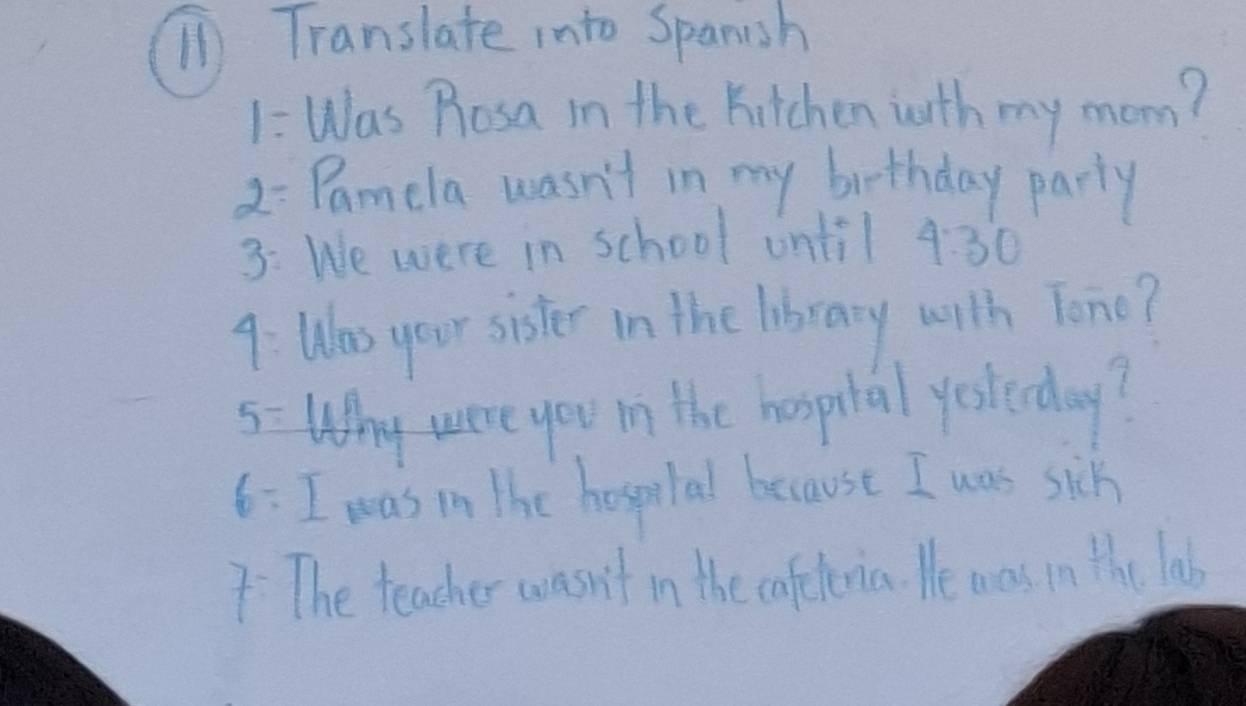 11 Translate into Spanish
1= Was Rosa in the Kitchen with my mom?
2= Pamela wasn't in my birthday party
3= We were in school until 4:30
4= Was your sister in the library with Toño?
5= Why were you in the hospital yesterday?
6= I was in the hospital because I was sick
7= The teacher wasn't in the cafeteria. He was in the lab